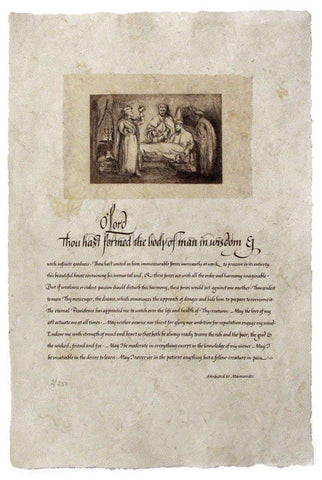 O' Lord
Thou hast formed the body of man in wisdom &
with infinite goodness · Thou hast united in him innumerable forces incessantly at work, to preserve in its entirety
this beautiful house containing his immortal soul, & these forces act with all the order and harmony imaginable ·
But if weakness or violent passion should disturb this harmony, these forces would act against one another · Thou sendest
to man Thy messenger, the disease, which announces the approach of danger and bids him to prepare to overcome it
The eternal Providence has appointed me to watch over the life and health of Thy creatures · May the love of my
art actuate me at all times · May neither avarice nor thirst for glory nor ambition for reputation engage my mind ·
Endow me with strength of mind and heart so that both be always ready to serve the rich and the poor, the good &
the wicked, friend and foe · May I be moderate in everything except in the knowledge of my science · May I
be insatiable in the desire to learn · May I never see in the patient anything but a fellow creature in pain
Attributed to Maimonides
2/250